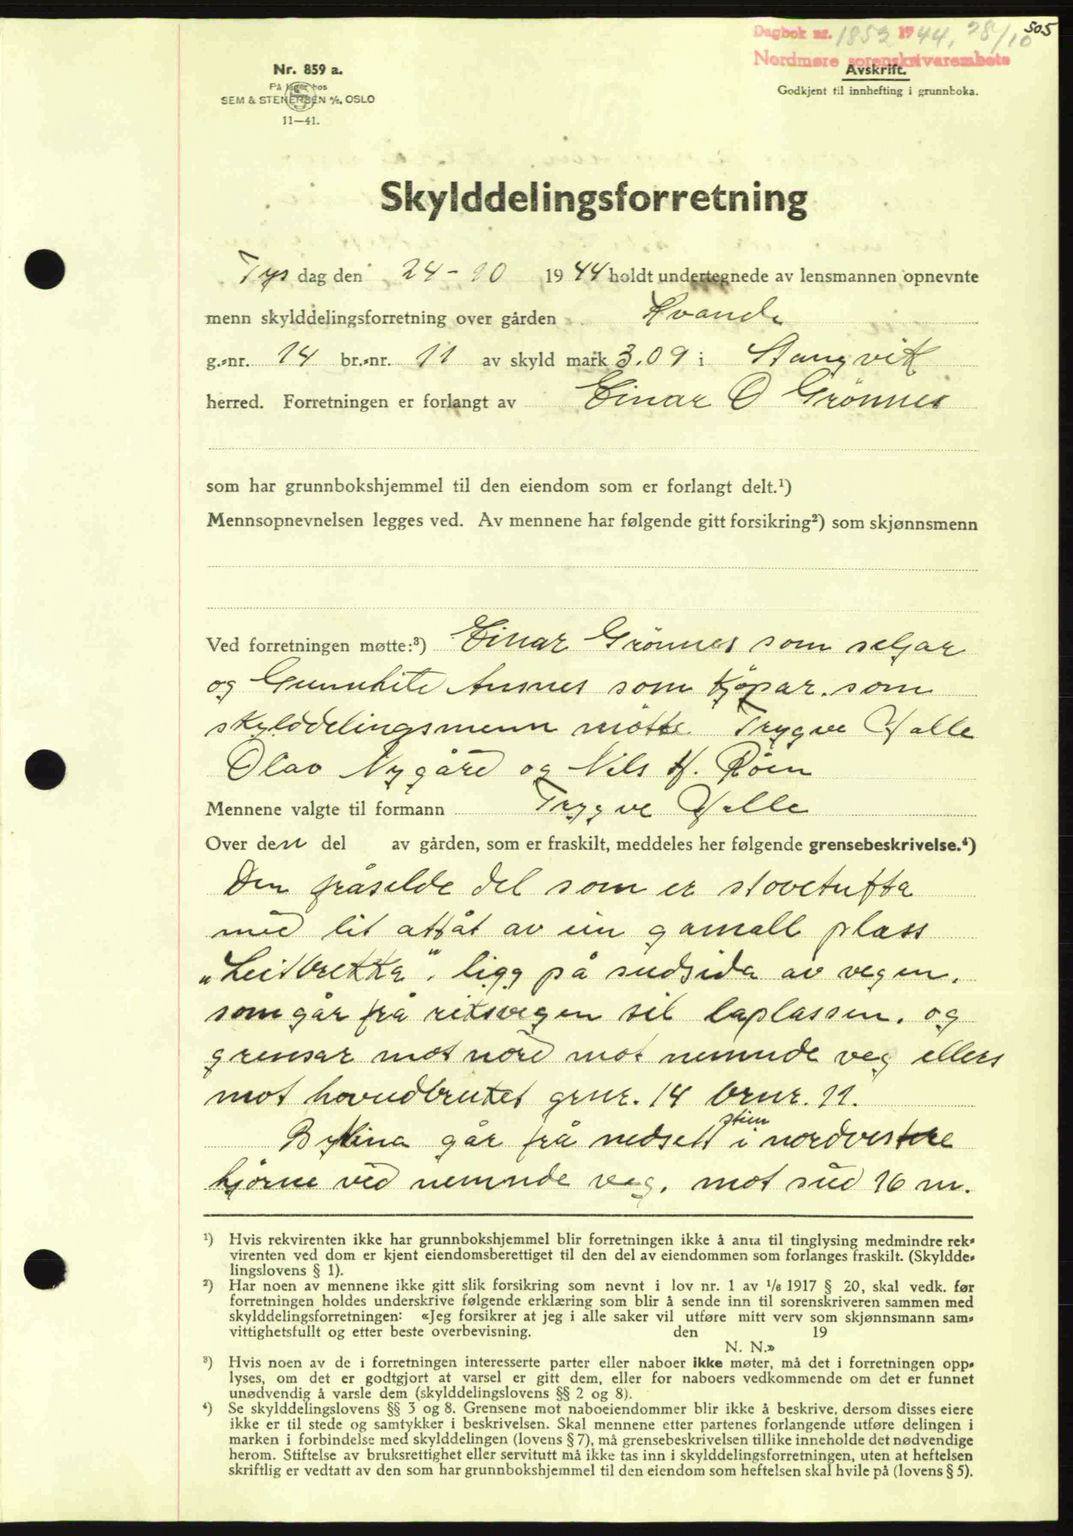 505
Dagbok nr. 1852 1944, 28/10
Nordmøre sorenskrivarembete
Nr. 859 a.
På lager hos
SEM & STENERSEN A/S, OSLO
11—41.
Avskrift.
Godkjent til innhefting i grunnboka.
Skylddelingsforretning
Tysdag den 24-10 1944 holdt undertegnede av lensmannen opnevnte
menn skylddelingsforretning over gården Kvande
g.-nr. 14 br.-nr. 11 av skyld mark 3.09 i Stangvik
herred. Forretningen er forlangt av Einar O Grönnes
som har grunnbokshjemmel til den eiendom som er forlangt delt.¹)
Mennsopnevnelsen legges ved. Av mennene har følgende gitt forsikring²) som skjønnsmenn
Ved forretningen møtte:³) Einar Grönnes som seljar
og Gunnhild Aasnes som kjöpar. som
skylddelingsmenn mötte Trygve Halle
Olav Nygård og Nils H. Röen
Mennene valgte til formann Trygve Halle
Over den del av gården, som er fraskilt, meddeles her følgende grensebeskrivelse.⁴)
Den fråselde del som er stovetufta
med lit attåt av ein gamall plass
„Leitbrekka", ligg på sudsida av vegen,
som går frå riksvegen til laplassen, og
grensar mot nord mot nemnde veg ellers
mot hovudbruket grnr. 14 brnr. 11.
stein
Bylina går frå nedsett i nordvestre
hjörne ved nemnde veg, mot sud 16 m.
¹) Hvis rekvirenten ikke har grunnbokshjemmel blir forretningen ikke å anta til tinglysing medmindre rek-
virenten ved dom er kjent eiendomsberettiget til den del av eiendommen som forlanges fraskilt. (Skyldde-
lingslovens § 1).
²) Har noen av mennene ikke gitt slik forsikring som nevnt i lov nr. 1 av ¹/₆ 1917 § 20, skal vedk. før
forretningen holdes underskrive følgende erklæring som blir å sende inn til sorenskriveren sammen med
skylddelingsforretningen: «Jeg forsikrer at jeg i alle saker vil utføre mitt verv som skjønnsmann sam-
vittighetsfullt og etter beste overbevisning. den 19
N. N.»
³) Hvis noen av de i forretningen interesserte parter eller naboer ikke møter, må det i forretningen opp-
lyses, om det er godtgjort at varsel er gitt dem, eller for naboers vedkommende om det er funnet
unødvendig å varsle dem (skylddelingslovens §§ 2 og 8).
⁴) Se skylddelingslovens §§ 3 og 8. Grensene mot naboeiendommer blir ikke å beskrive, dersom disses eiere
ikke er til stede og samtykker i beskrivelsen. Skal mennene etter partenes forlangende utføre delingen i
marken i forbindelse med skylddelingen (lovens § 7), må grensebeskrivelsen tillike inneholde det nødvendige
herom. Stiftelse av bruksrettighet eller servitutt må ikke tas inn i skylddelingsforretningen, uten at heftelsen
skriftlig er vedtatt av den som har grunnbokshjemmel til den eiendom som heftelsen skal hvile på (lovens § 5).